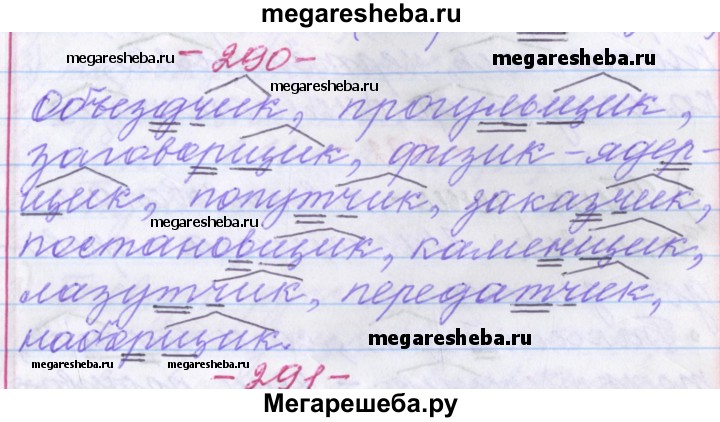 megaresheba.ru
-290-
megaresheba.ru
megaresheba.ru
megaresheba.ru
Объездчик, прогульщик,
заговорщик, физик-ядер-
щик, попутчик, заказчик,
megaresheba.ru
постановщик, каменщик,
лазутчик, передатчик,
наборщик.
megaresheba.ru
megaresheba.ru
megaresheba.ru
-291-
Мегарешеба.ру